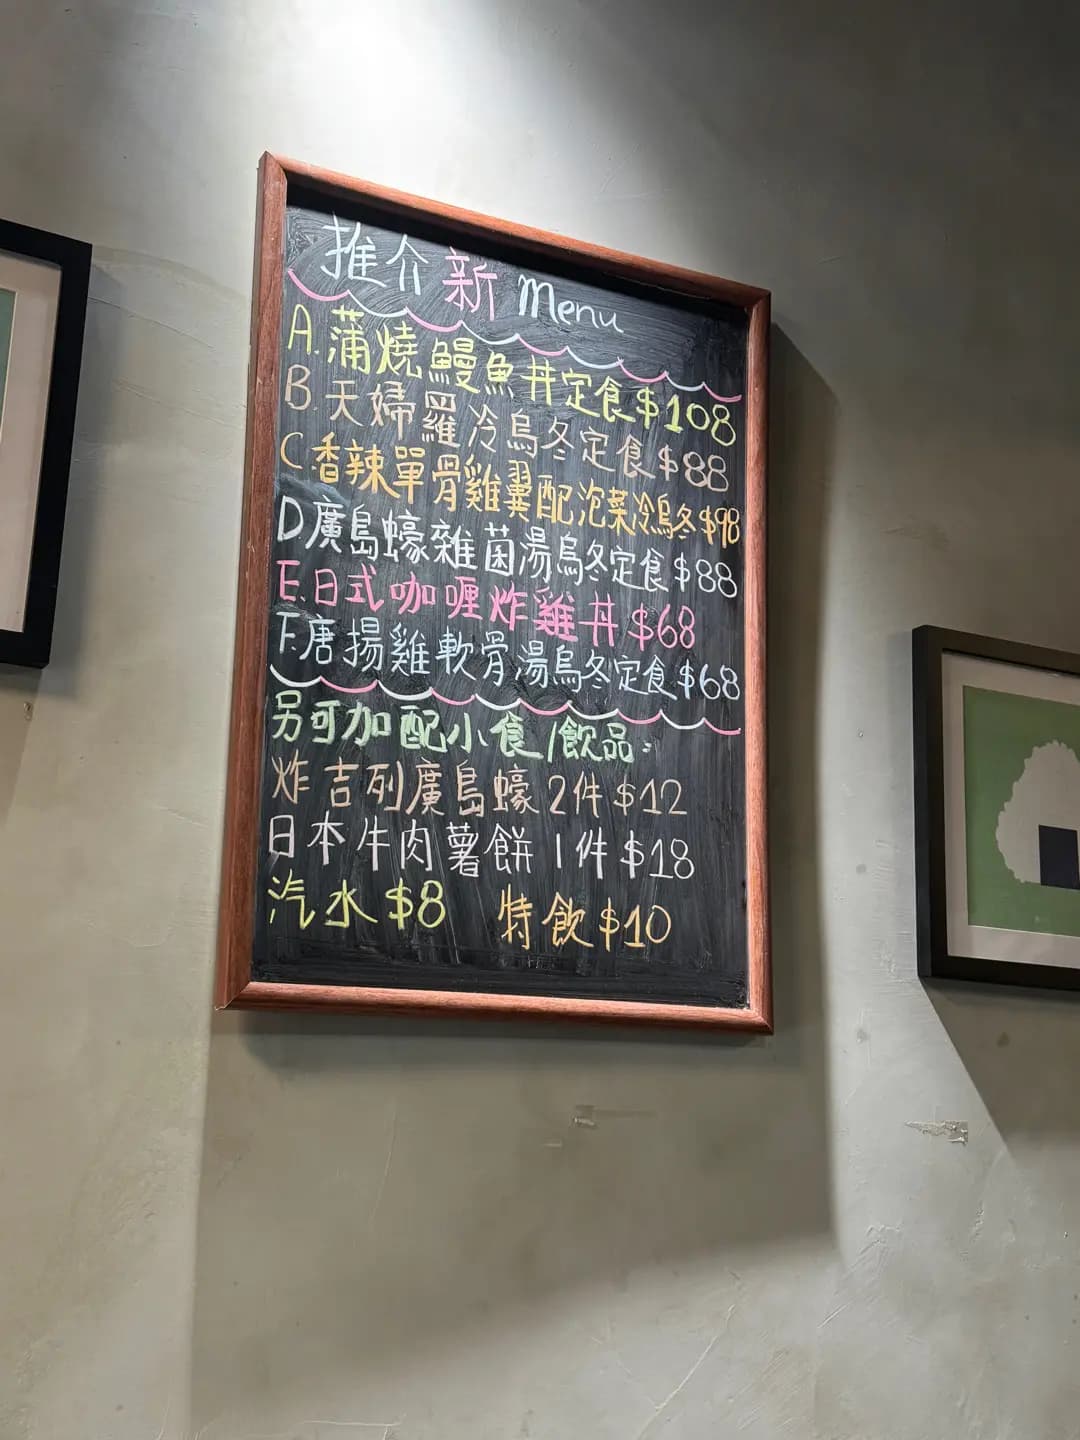 推介新 Menu
A.蒲燒鰻魚丼定食$108
B.天婦羅冷烏冬定食$88
C香辣單骨雞翼配泡菜冷烏冬$98
D廣島蠔雜菌湯烏冬定食$88
E.日式咖喱炸雞丼$68
F.唐揚雞軟骨湯烏冬定食$68
另可加配小食/飲品:
炸吉列廣島蠔2件$12
日本牛肉薯餅1件$18
汽水$8 特飲$10